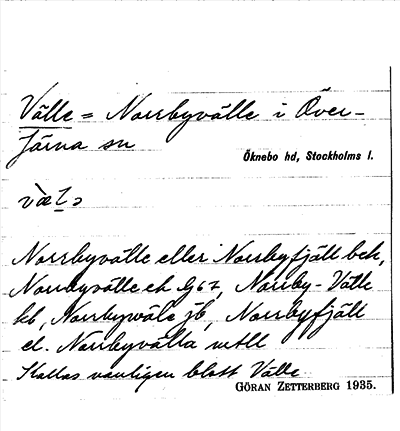 Välle = Norrbyvälle i Över-
Järna sn
Öknebo hd, Stockholms l.
Norrbyvälle eller Norrbyfjäll bek,
Norrbyvälle ek G67, Norrby-Välle
kb, Norrbywäle jb, Norrbyfjäll
el. Norrbyvälla mtll
Kallas vanligen blott Välle
GÖRAN ZETTERBERG 1935.